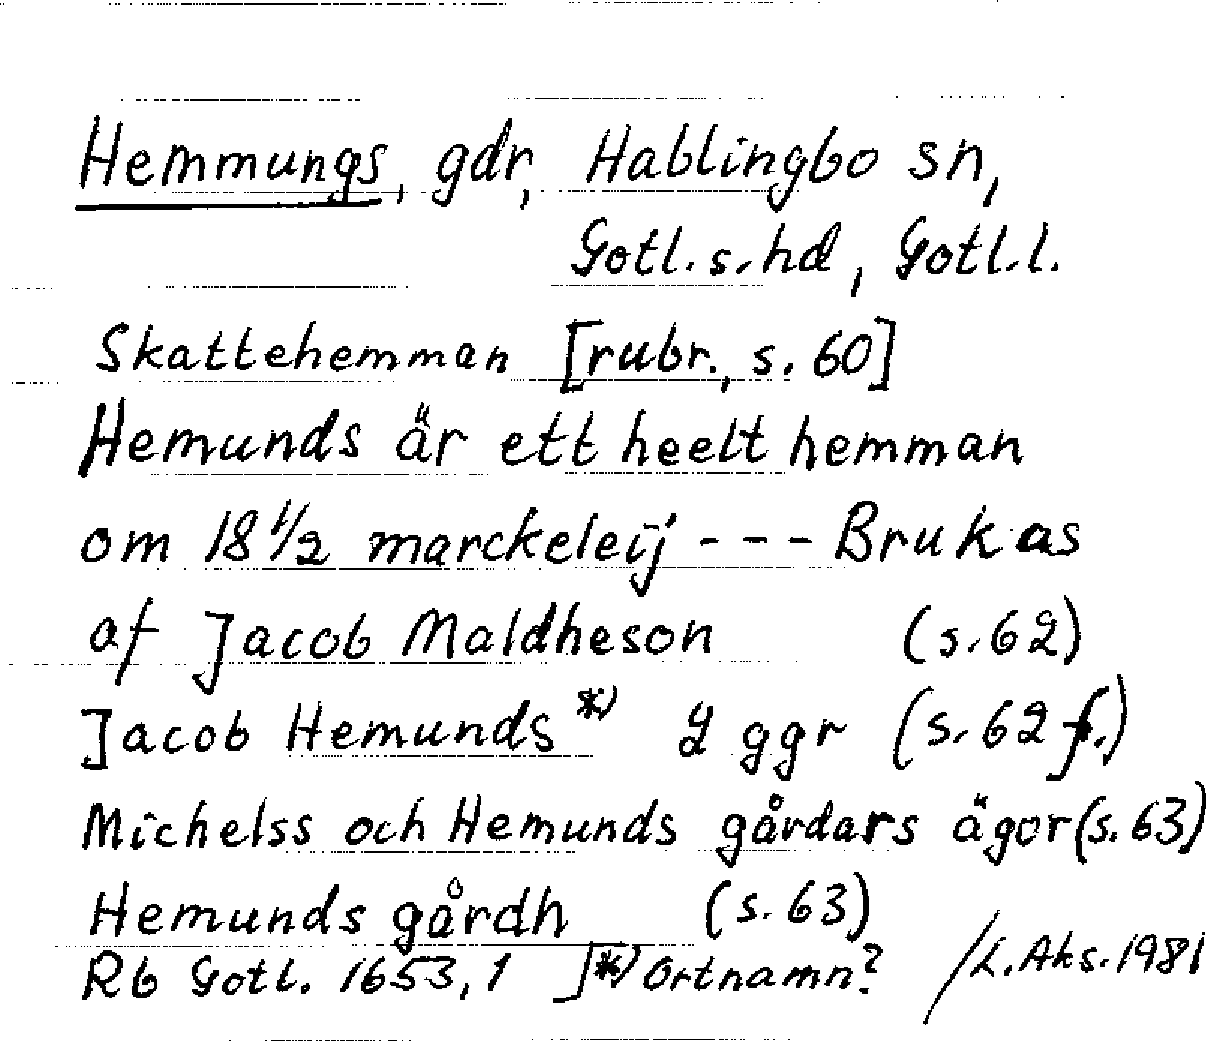 Hemmungs, gdr, Hablingbo sn,
Gotl. s. hd, Gotl. l.
Skattehemman [rubr., s. 60]
Hemunds är ett heelt hemman
om 18 1/2 marckeleij - - - Brukas
af Jacob Maldheson (s. 62)
Jacob Hemunds *) 2 ggr (s. 62 f.)
Michelss och Hemunds gårdars ägor (s. 63)
Hemunds gårdh (s. 63)
Rb Gotl. 1653, 1 ] *) Ortnamn? /L. Aks. 1981